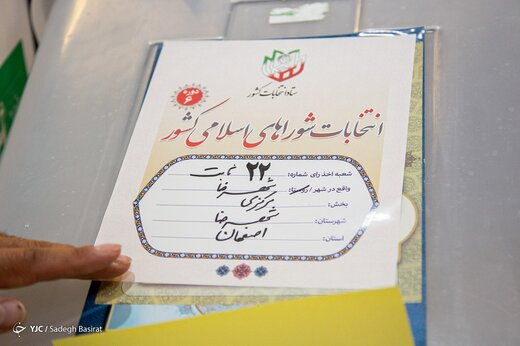 ستاد انتخابات کشور
دوره
۶
انتخابات شوراهای اسلامی کشور
شعبه اخذ رای شماره: ۲۲ ثابت
واقع در شهر / روستا: شهرضا
بخش: مرکزی
شهرستان: شهرضا
استان: اصفهان
YJC / Sadegh Basirat